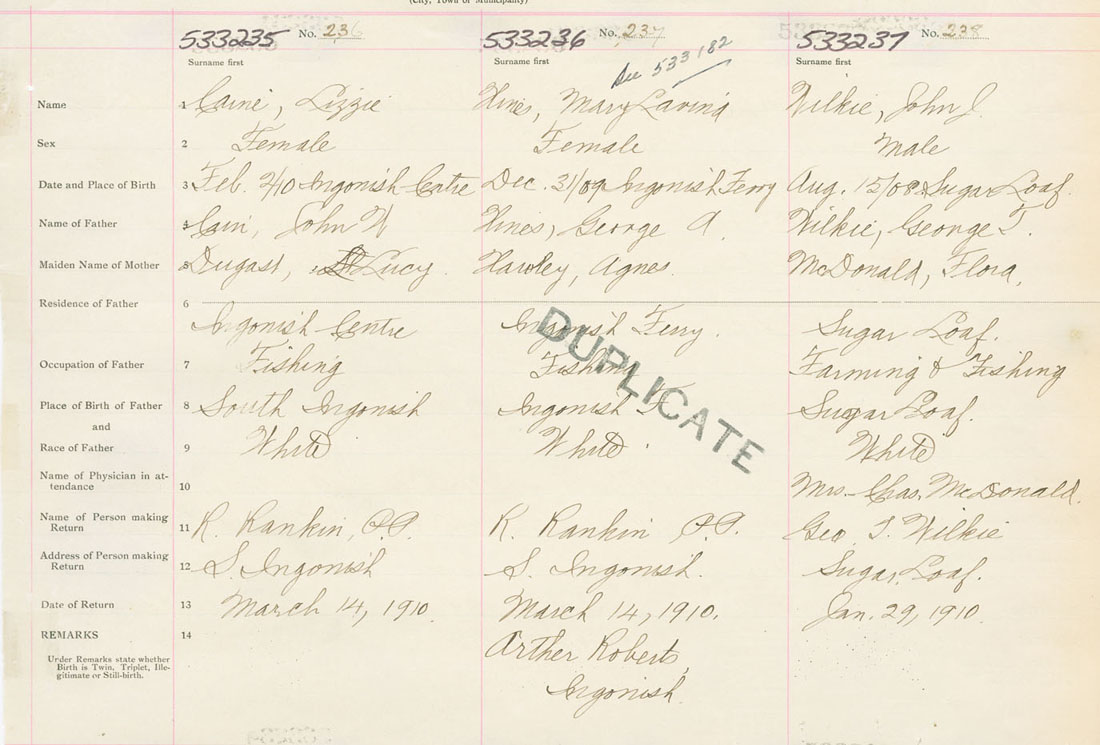 (City, Town or Municipality)
533235 No. 236 533236 No. 237 533237 No. 238
Surname first Surname first See 533182 Surname first
Name 1 Caine, Lizzie Hines, Mary Lavina Wilkie, John J.
Sex 2 Female Female Male
Date and Place of Birth 3 Feb. 2/10 Ingonish Centre Dec. 31/09 Ingonish Ferry Aug. 15/08 Sugar Loaf.
Name of Father 4 Cain, John W Hines, George A. Wilkie, George T.
Maiden Name of Mother 5 Dugast, Lucy Hawley, Agnes. McDonald, Flora,
Residence of Father 6
Ingonish Centre Ingonish Ferry. Sugar Loaf.
DUPLICATE
Occupation of Father 7 Fishing Fishing Farming & Fishing
Place of Birth of Father 8 South Ingonish Ingonish F. Sugar Loaf.
and
Race of Father 9 White White White
Name of Physician in at-
tendance 10 Mrs. Chas. McDonald.
Name of Person making
Return 11 R. Rankin, P.P. R. Rankin P.P. Geo. T. Wilkie
Address of Person making
Return 12 S. Ingonish S. Ingonish. Sugar Loaf.
Date of Return 13 March 14, 1910. March 14, 1910. Jan. 29, 1910.
REMARKS 14
Arther Roberts,
Ingonish.
Under Remarks state whether
Birth is Twin, Triplet, Ille-
gitimate or Still-birth.